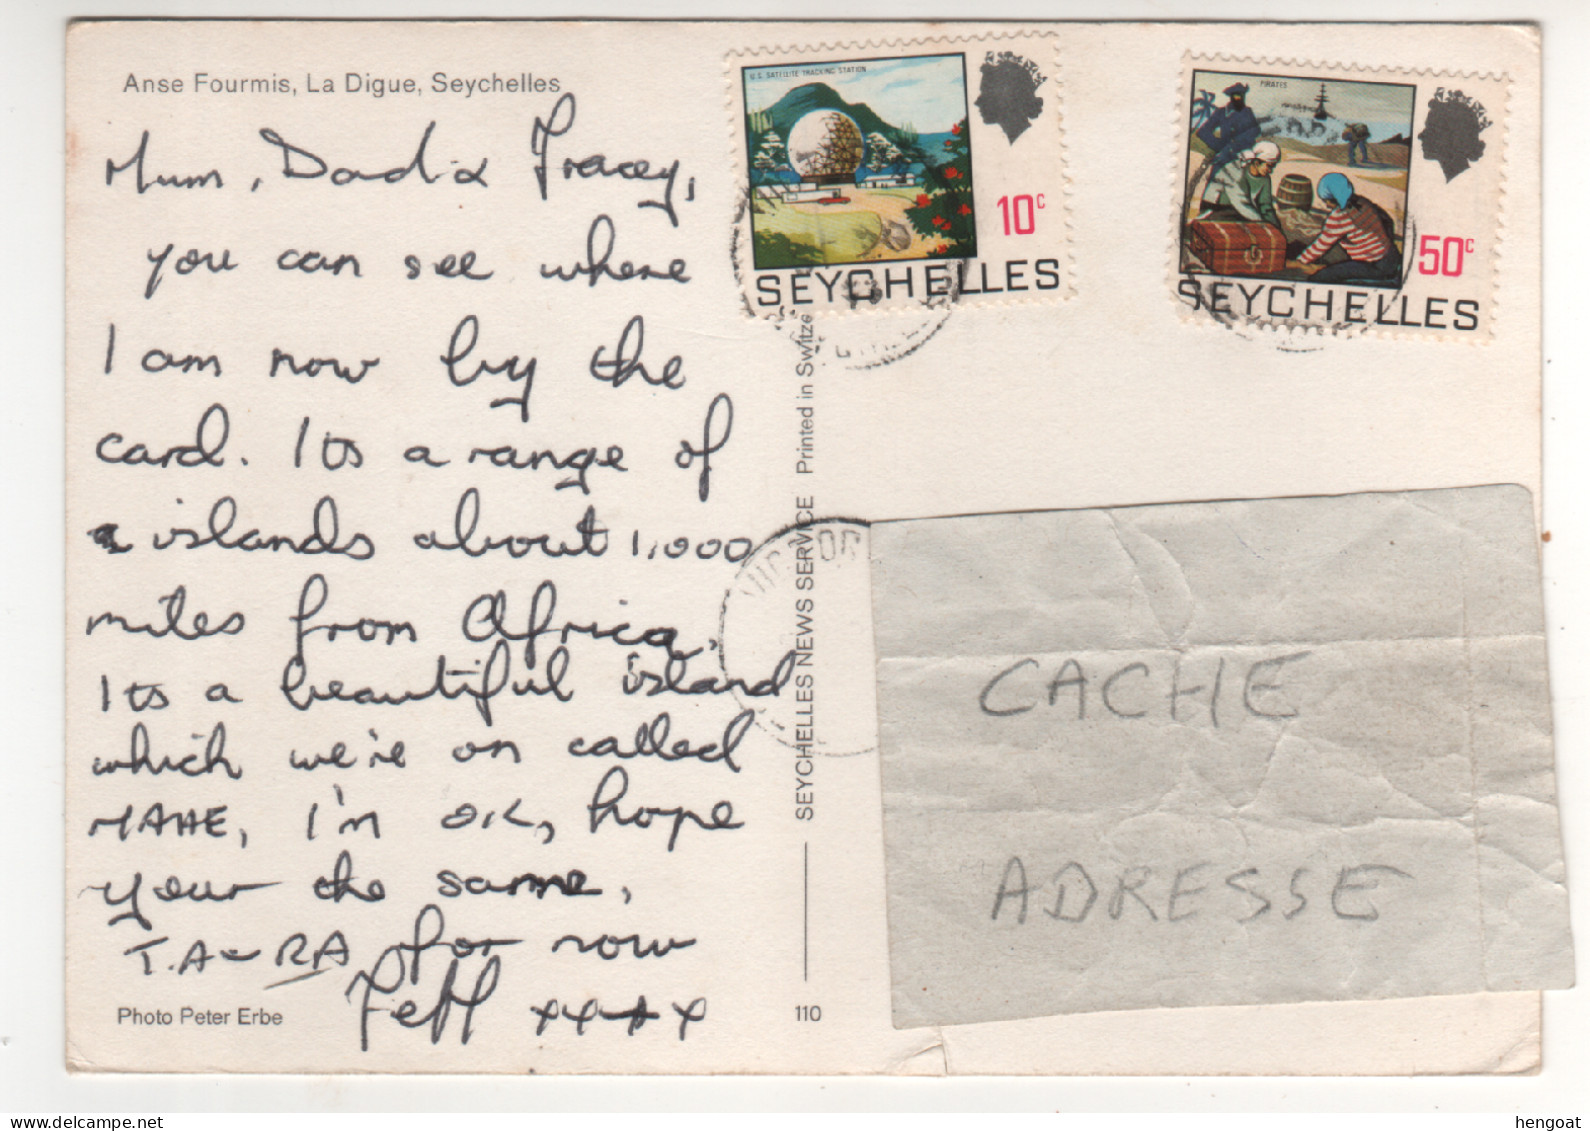 Anse Fourmis, La Digue, Seychelles
Mum, Dad & Tracey,
you can see where
I am now by the
card. Its a range of
islands about 1,000
miles from Africa.
Its a beautiful island
which we're on called
MAHE, I'm OK, hope
your the same,
for now
Jeff xxxx
Photo Peter Erbe
110
SEYCHELLES NEWS SERVICE Printed in Switze
U.S. SATELLITE TRACKING STATION
10c
SEYCHELLES
PIRATES
50c
SEYCHELLES
CACHE
ADRESSE
hengoat